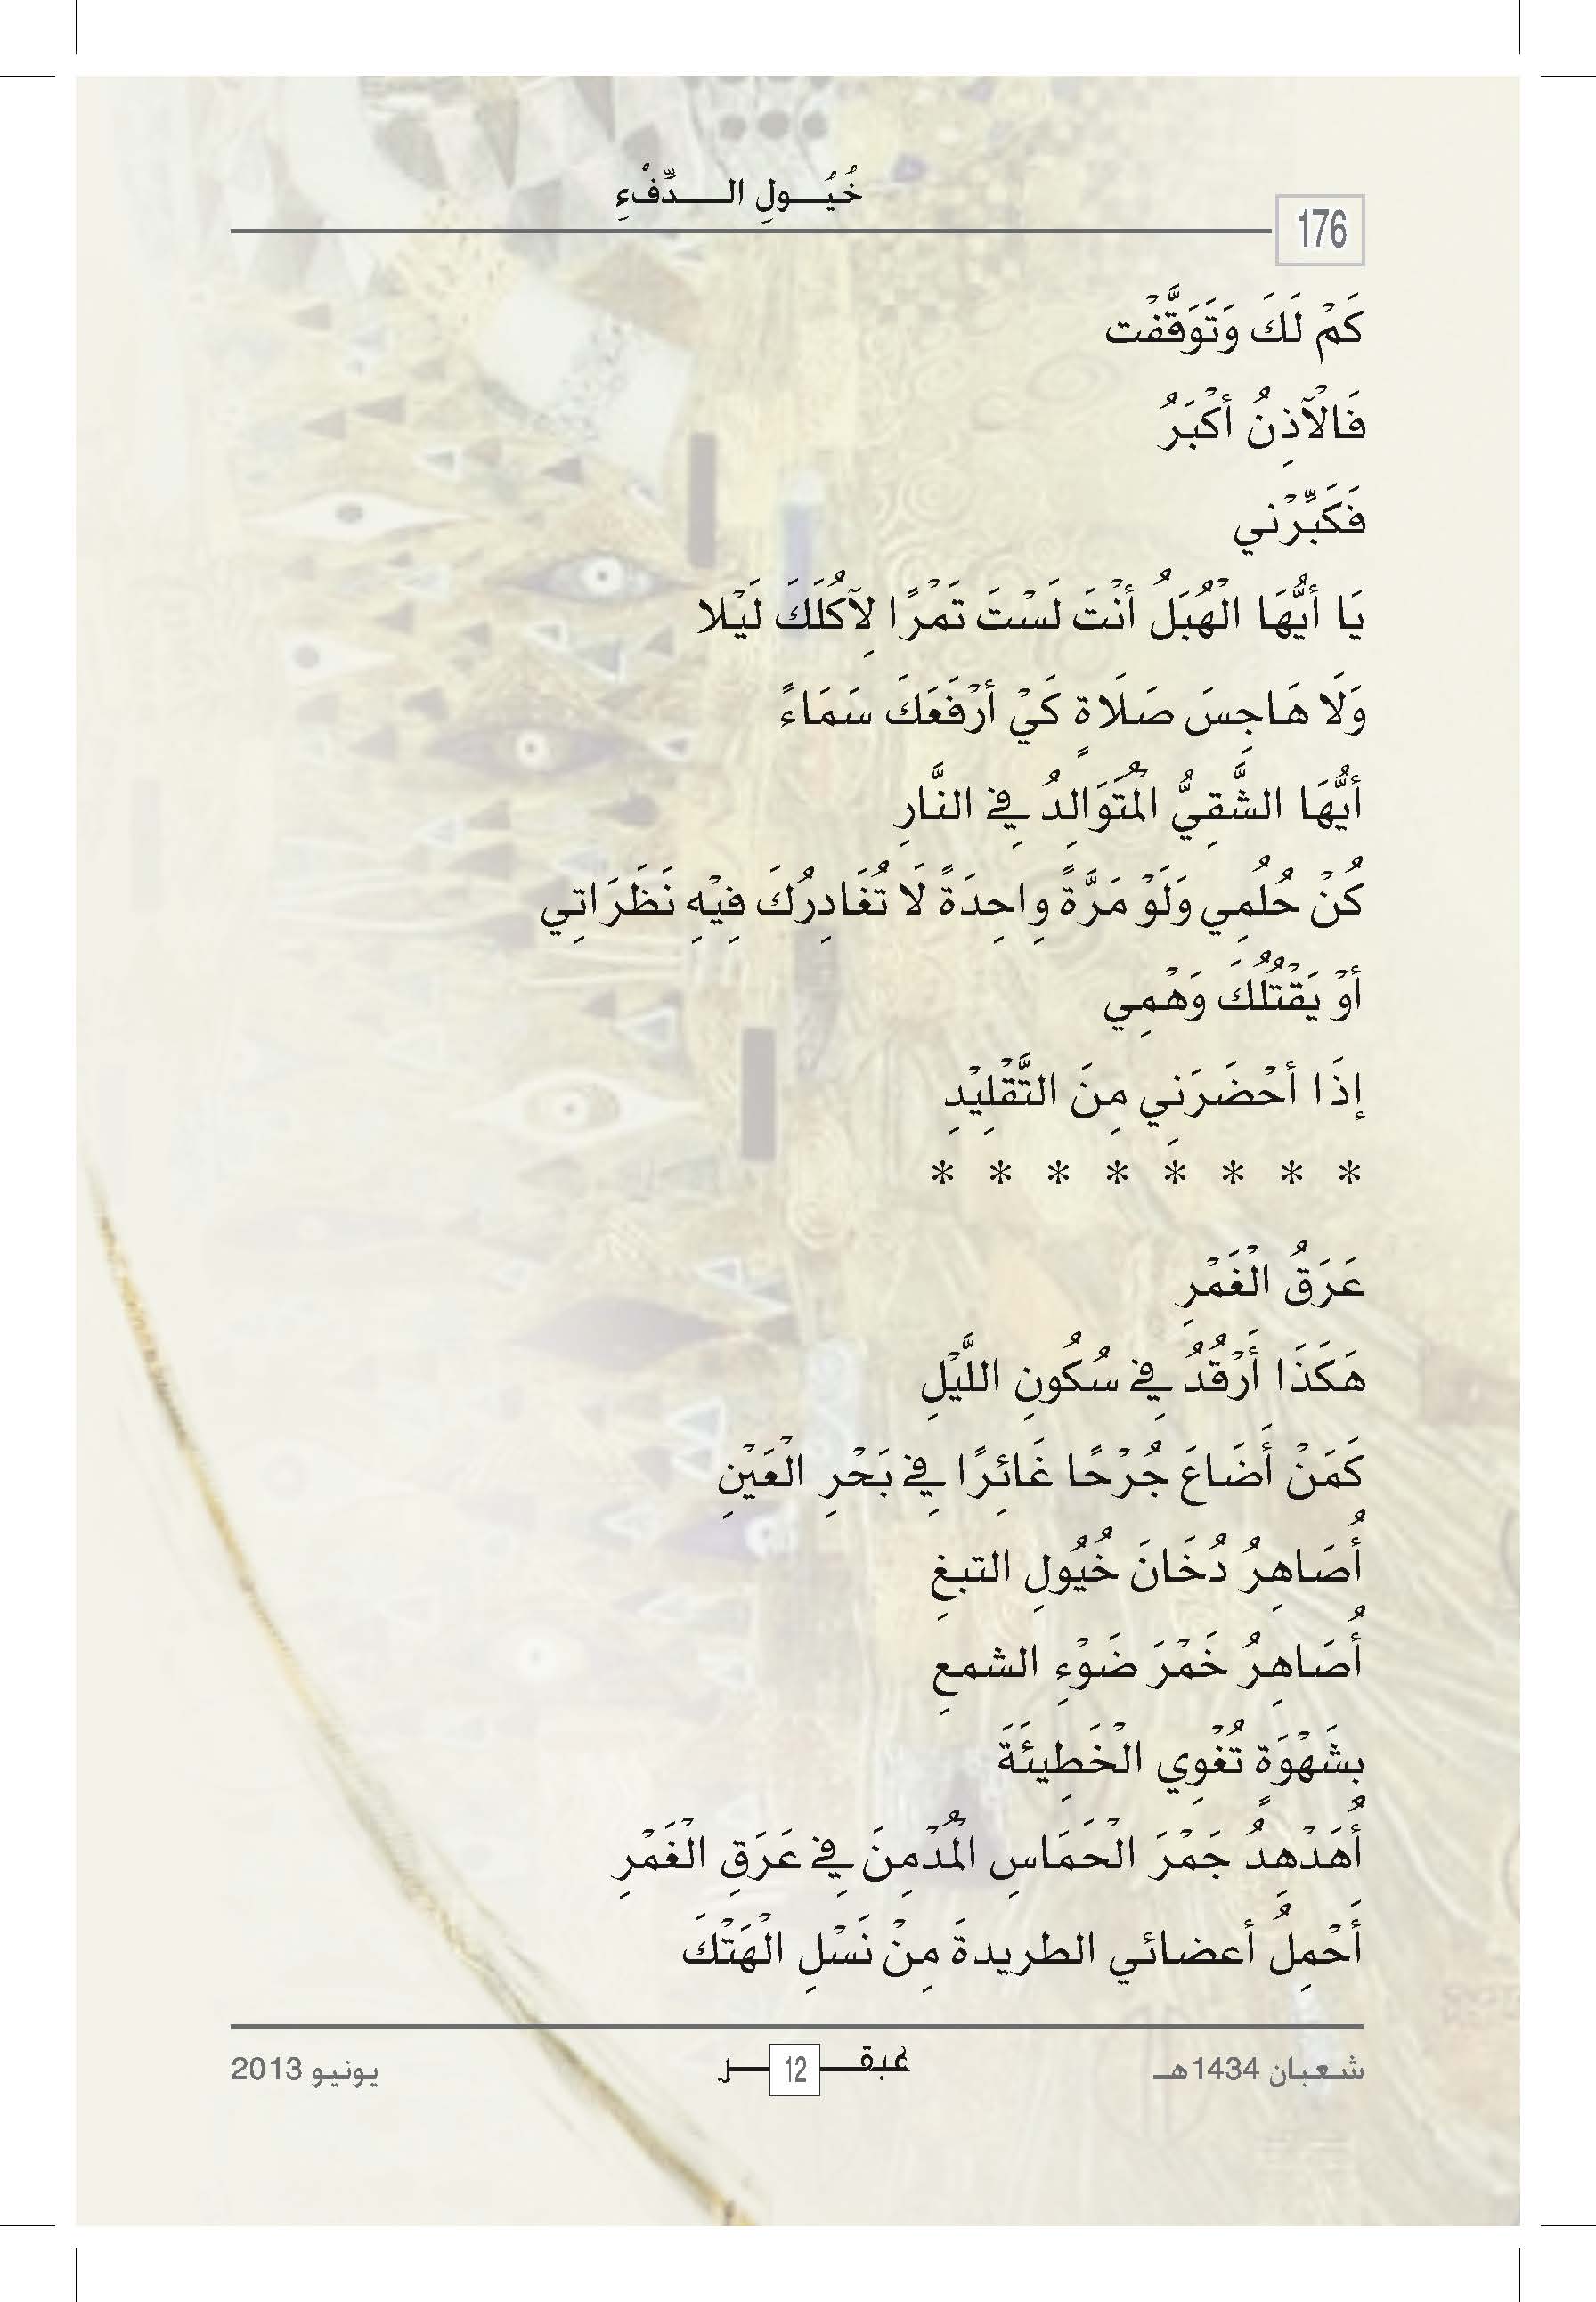 خُيُــولِ الـــدِّفْءِ
176
كَمْ لَكَ وَتَوَقَّفْت
فَالْآذِنُ أَكْبَرُ
فَكَبِّرْني
يَا أَيُّهَا الْهُبَلُ أَنْتَ لَسْتَ تَمْرًا لِآكُلَكَ لَيْلا
وَلَا هَاجِسَ صَلَاةٍ كَيْ أَرْفَعَكَ سَمَاءً
أَيُّهَا الشَّقِيُّ الْمُتَوَالِدُ فِي النَّارِ
كُنْ حُلُمِي وَلَوْ مَرَّةً وِاحِدَةً لَا تُغَادِرُكَ فِيْهِ نَظَرَاتِي
أَوْ يَقْتُلُكَ وَهْمِي
إِذَا أَحْضَرَنِي مِنَ التَّقْلِيْدِ
* * * * * * * *
عَرَقُ الْغَمْرِ
هَكَذَا أَرْقُدُ فِي سُكُونِ اللَّيْلِ
كَمَنْ أَضَاعَ جُرْحًا غَائِرًا فِي بَحْرِ الْعَيْنِ
أُصَاهِرُ دُخَانَ خُيُولِ التبغِ
أُصَاهِرُ خَمْرَ ضَوْءِ الشمعِ
بِشَهْوَةٍ تُغْوِي الْخَطِيئَةَ
أُهَدْهِدُ جَمْرَ الْحَمَاسِ الْمُدْمِنَ فِي عَرَقِ الْغَمْرِ
أَحْمِلُ أعضائي الطريدةَ مِنْ نَسْلِ الْهَتْكَ
شعبان 1434هـ
عبقـــ 12 ــر
يونيو 2013